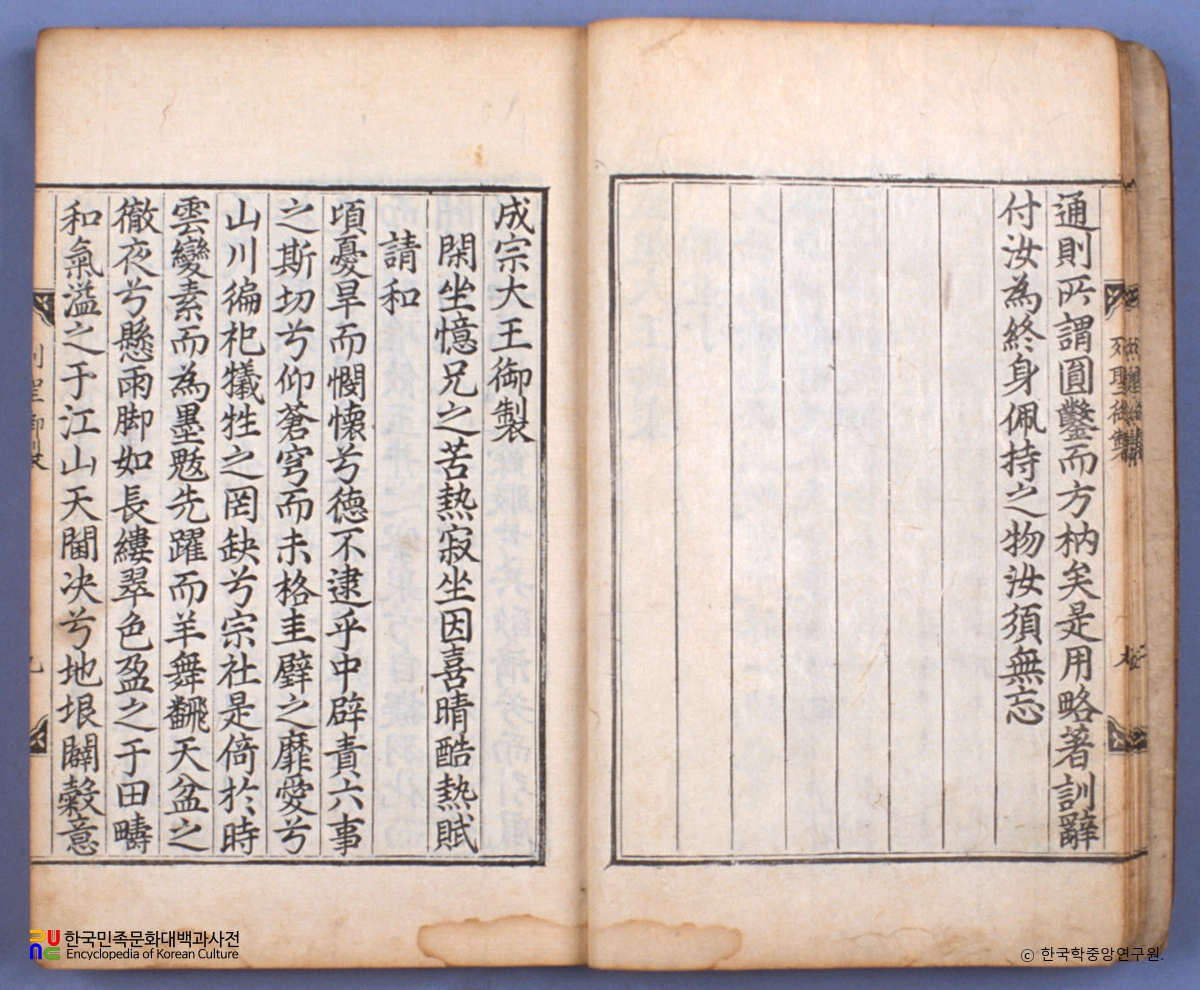 通則所謂圓鑿而方枘矣是用略著訓辭
付汝為終身佩持之物汝須無忘
列聖御製
成宗大王御製
閑坐憶兄之苦熱寂坐因喜晴酷熱賦
請和
頃憂旱而憫懷兮德不逮乎中辟責六事
之斯切兮仰蒼穹而未格圭璧之靡愛兮
山川徧祀犧牲之罔缺兮宗社是倚於時
雲變素而為墨颩先躍而羊舞飜天盆之
徹夜兮懸雨脚如長縷翠色盈之于田疇
和氣溢之于江山天閫决兮地垠闢穀意
列聖御製
九
한국민족문화대백과사전
Encyclopedia of Korean Culture
ⓒ 한국학중앙연구원.